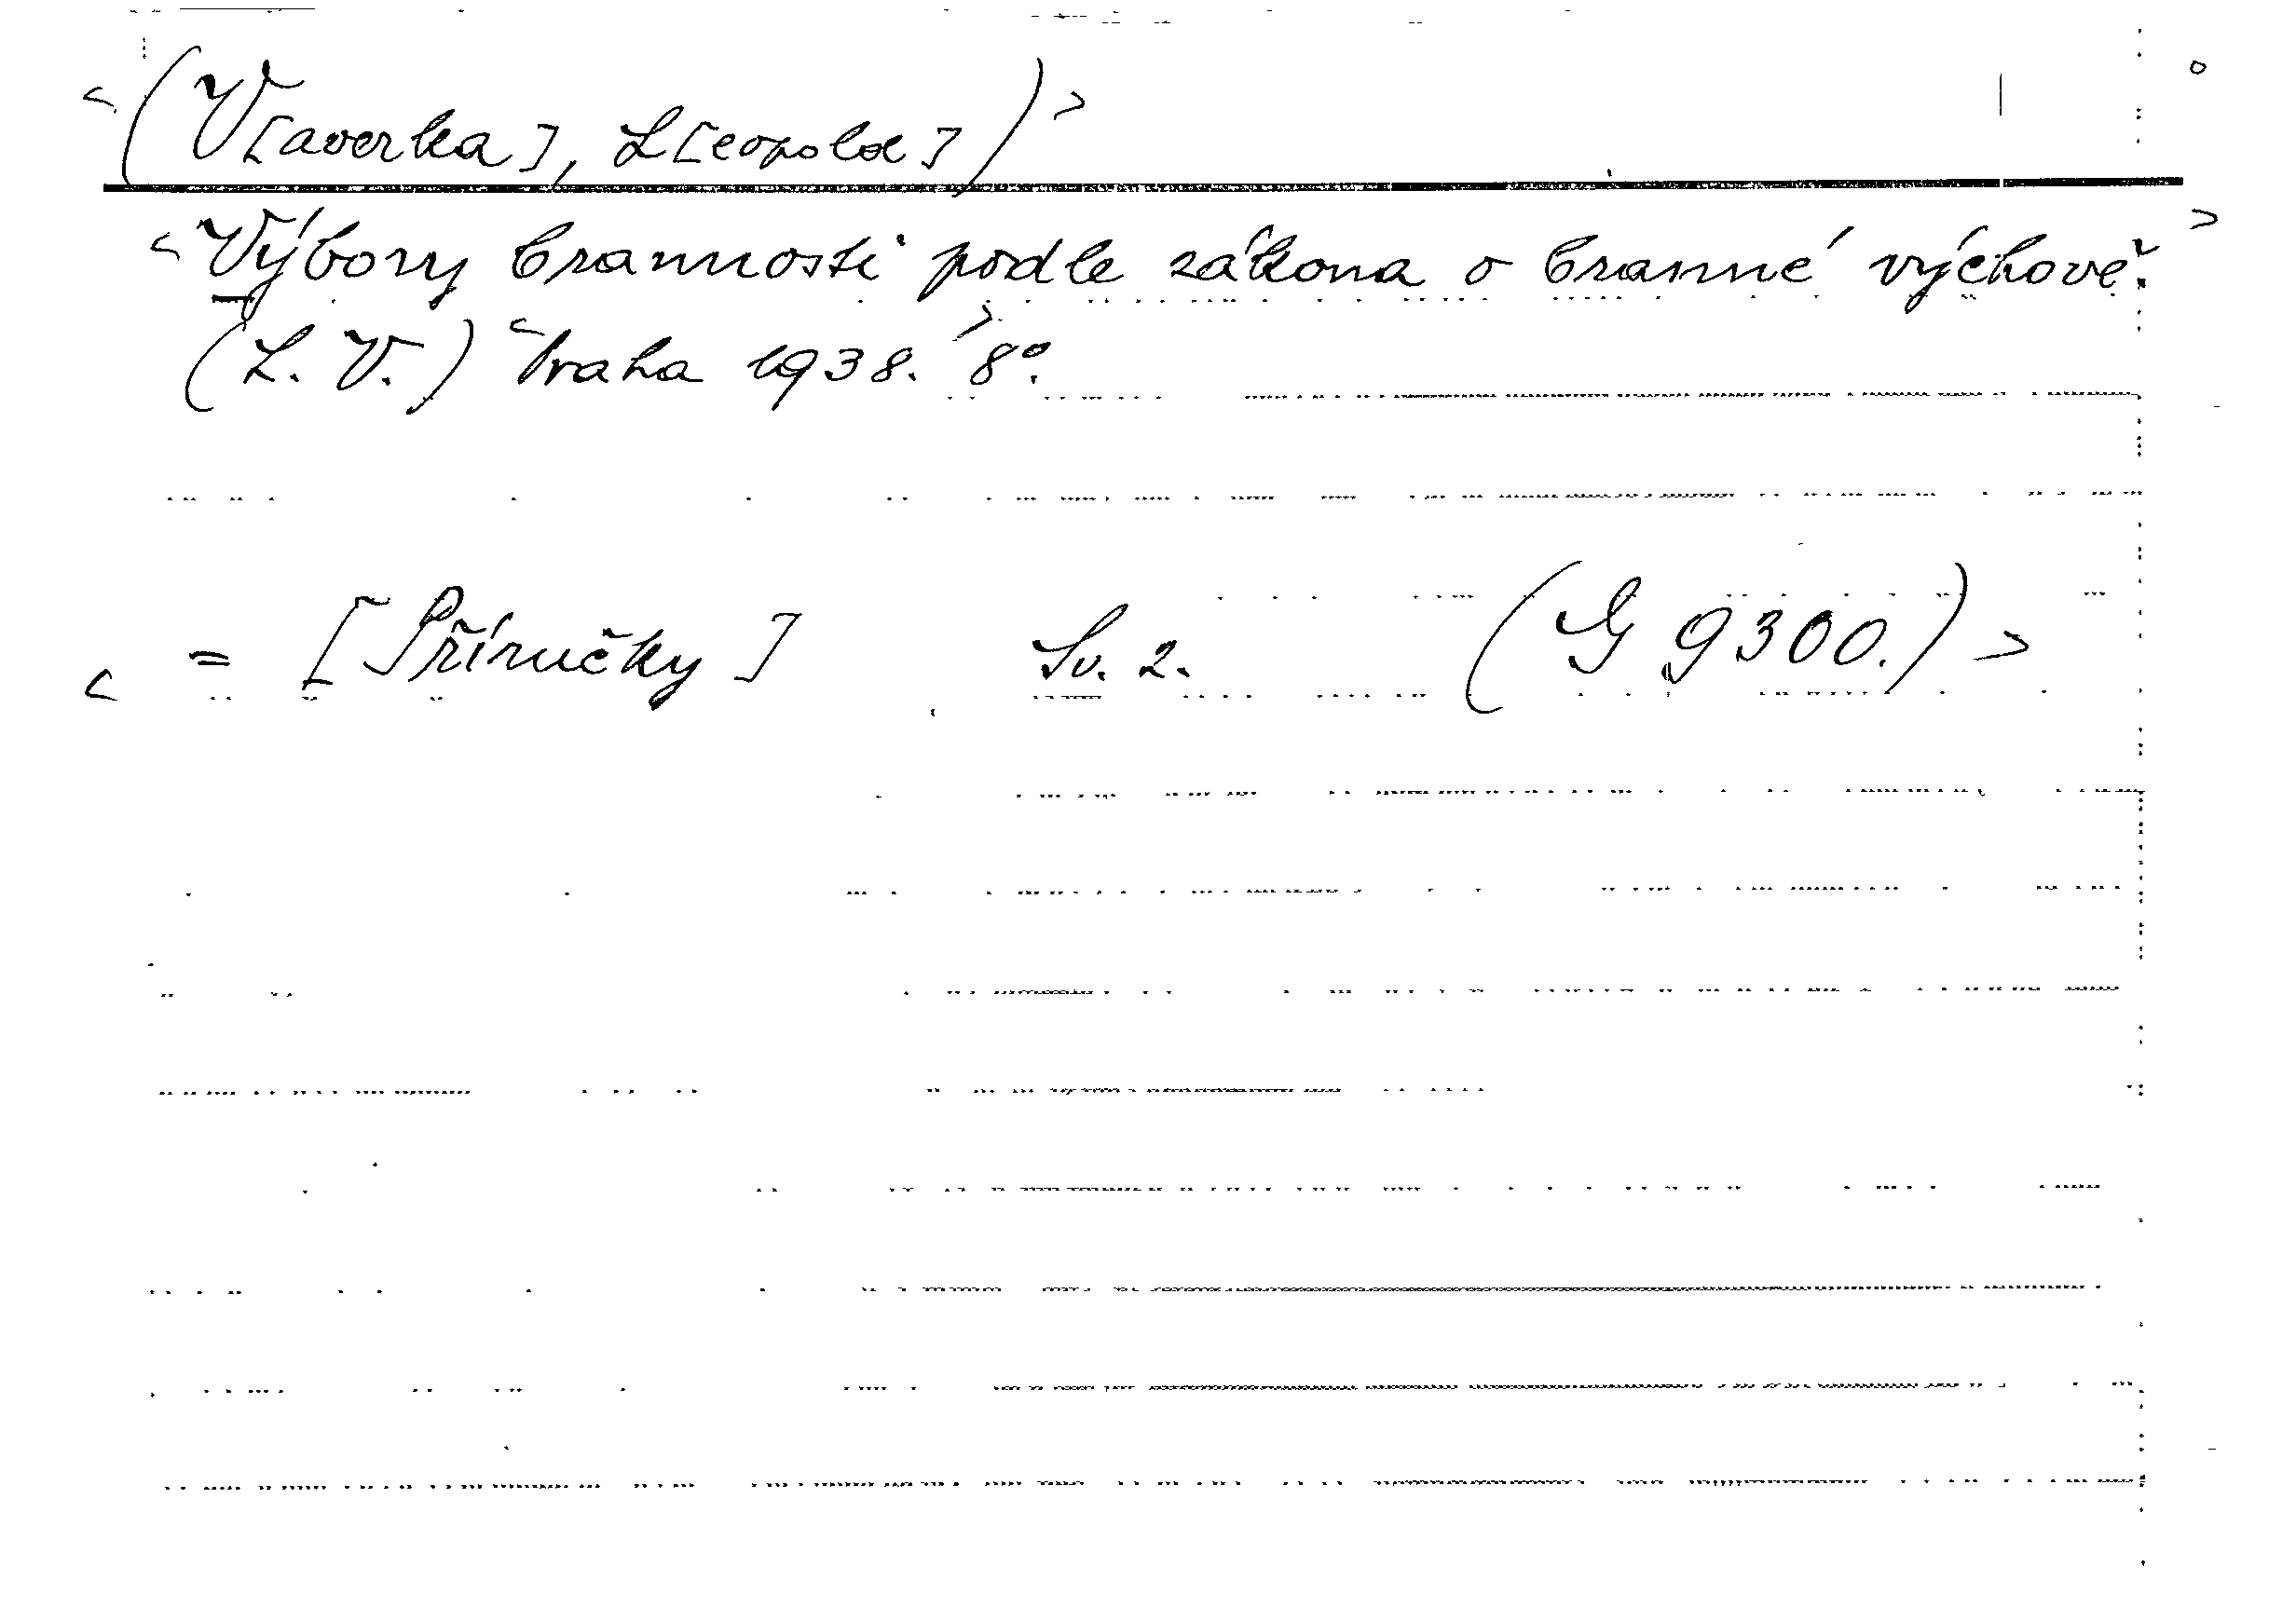 <(V[averka], L[eopold])>
<Výbory brannosti podle zákona o branné výchově.>
(L. V.) <Praha 1938.> 8°.
< = [Příručky] Sv. 2. (G 9300.) >